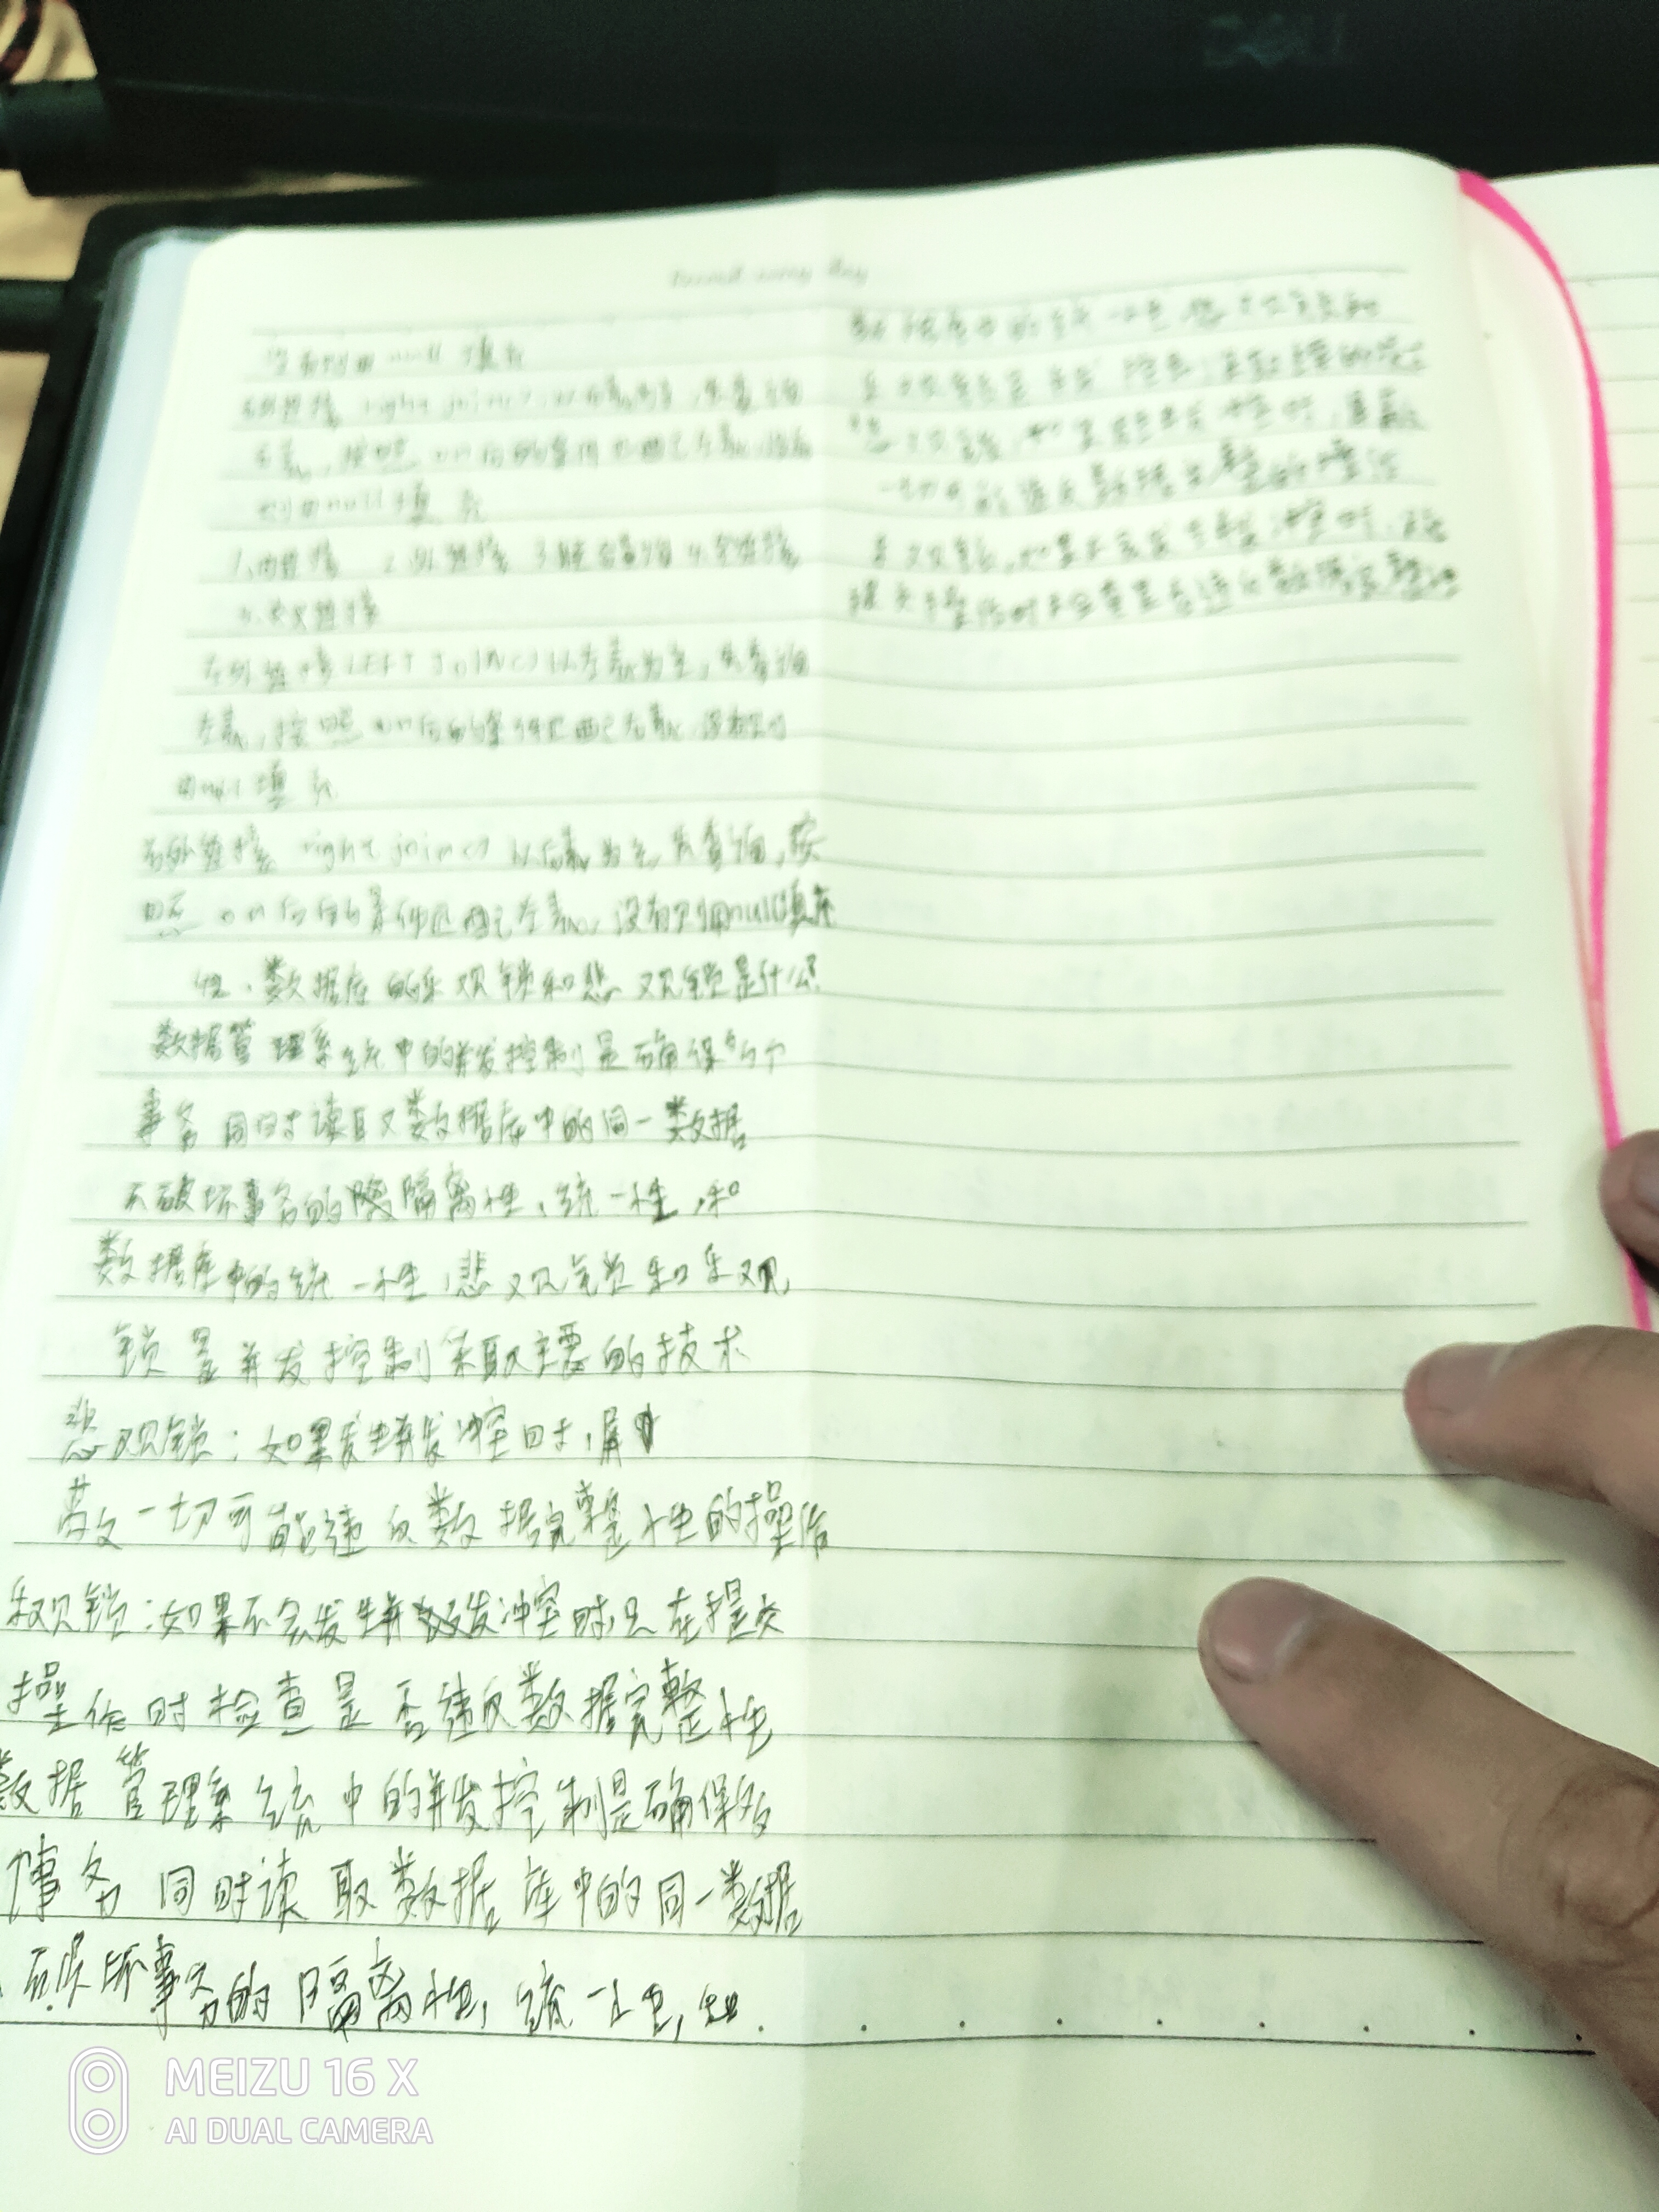 右外连接 right join() 以右表为主,先查询
右表,按照on后的条件匹配左表,没有
则用null填充
1.内连接 2.外连接 4.全连接
5.交叉连接
左外连接LEFT JOIN()以左表为主,先查询
左表,按照on后的条件匹配右表,没有则
用null填充
右外连接 right join() 以右表为主,先查询,按
照on后的条件匹配左表,没有则用null填充
数据库的乐观锁和悲观锁是什么?
数据管理系统中的并发控制是确保多个
事务同时读取数据库中的同一数据
不破坏事务的隔离性、统一性,和
数据库中的统一性,悲观锁和乐观
锁是并发控制采取主要的技术
悲观锁:如果发生并发冲突时,屏
蔽一切可能违反数据完整性的操作
乐观锁:如果不会发生并发冲突时,只在提交
操作时检查是否违反数据完整性
数据管理系统中的并发控制是确保多
个事务同时读取数据库中的同一数据
不破坏事务的隔离性,统一性,和
数据库中的统一性,悲观锁和
乐观锁是并发控制主要的
悲观锁,如果发生并发冲突时,屏蔽
一切可能违反数据完整的操作
乐观锁,如果不会发生并发冲突时,只在
提交操作时检查是否违反数据完整性
MEIZU 16 X
AI DUAL CAMERA